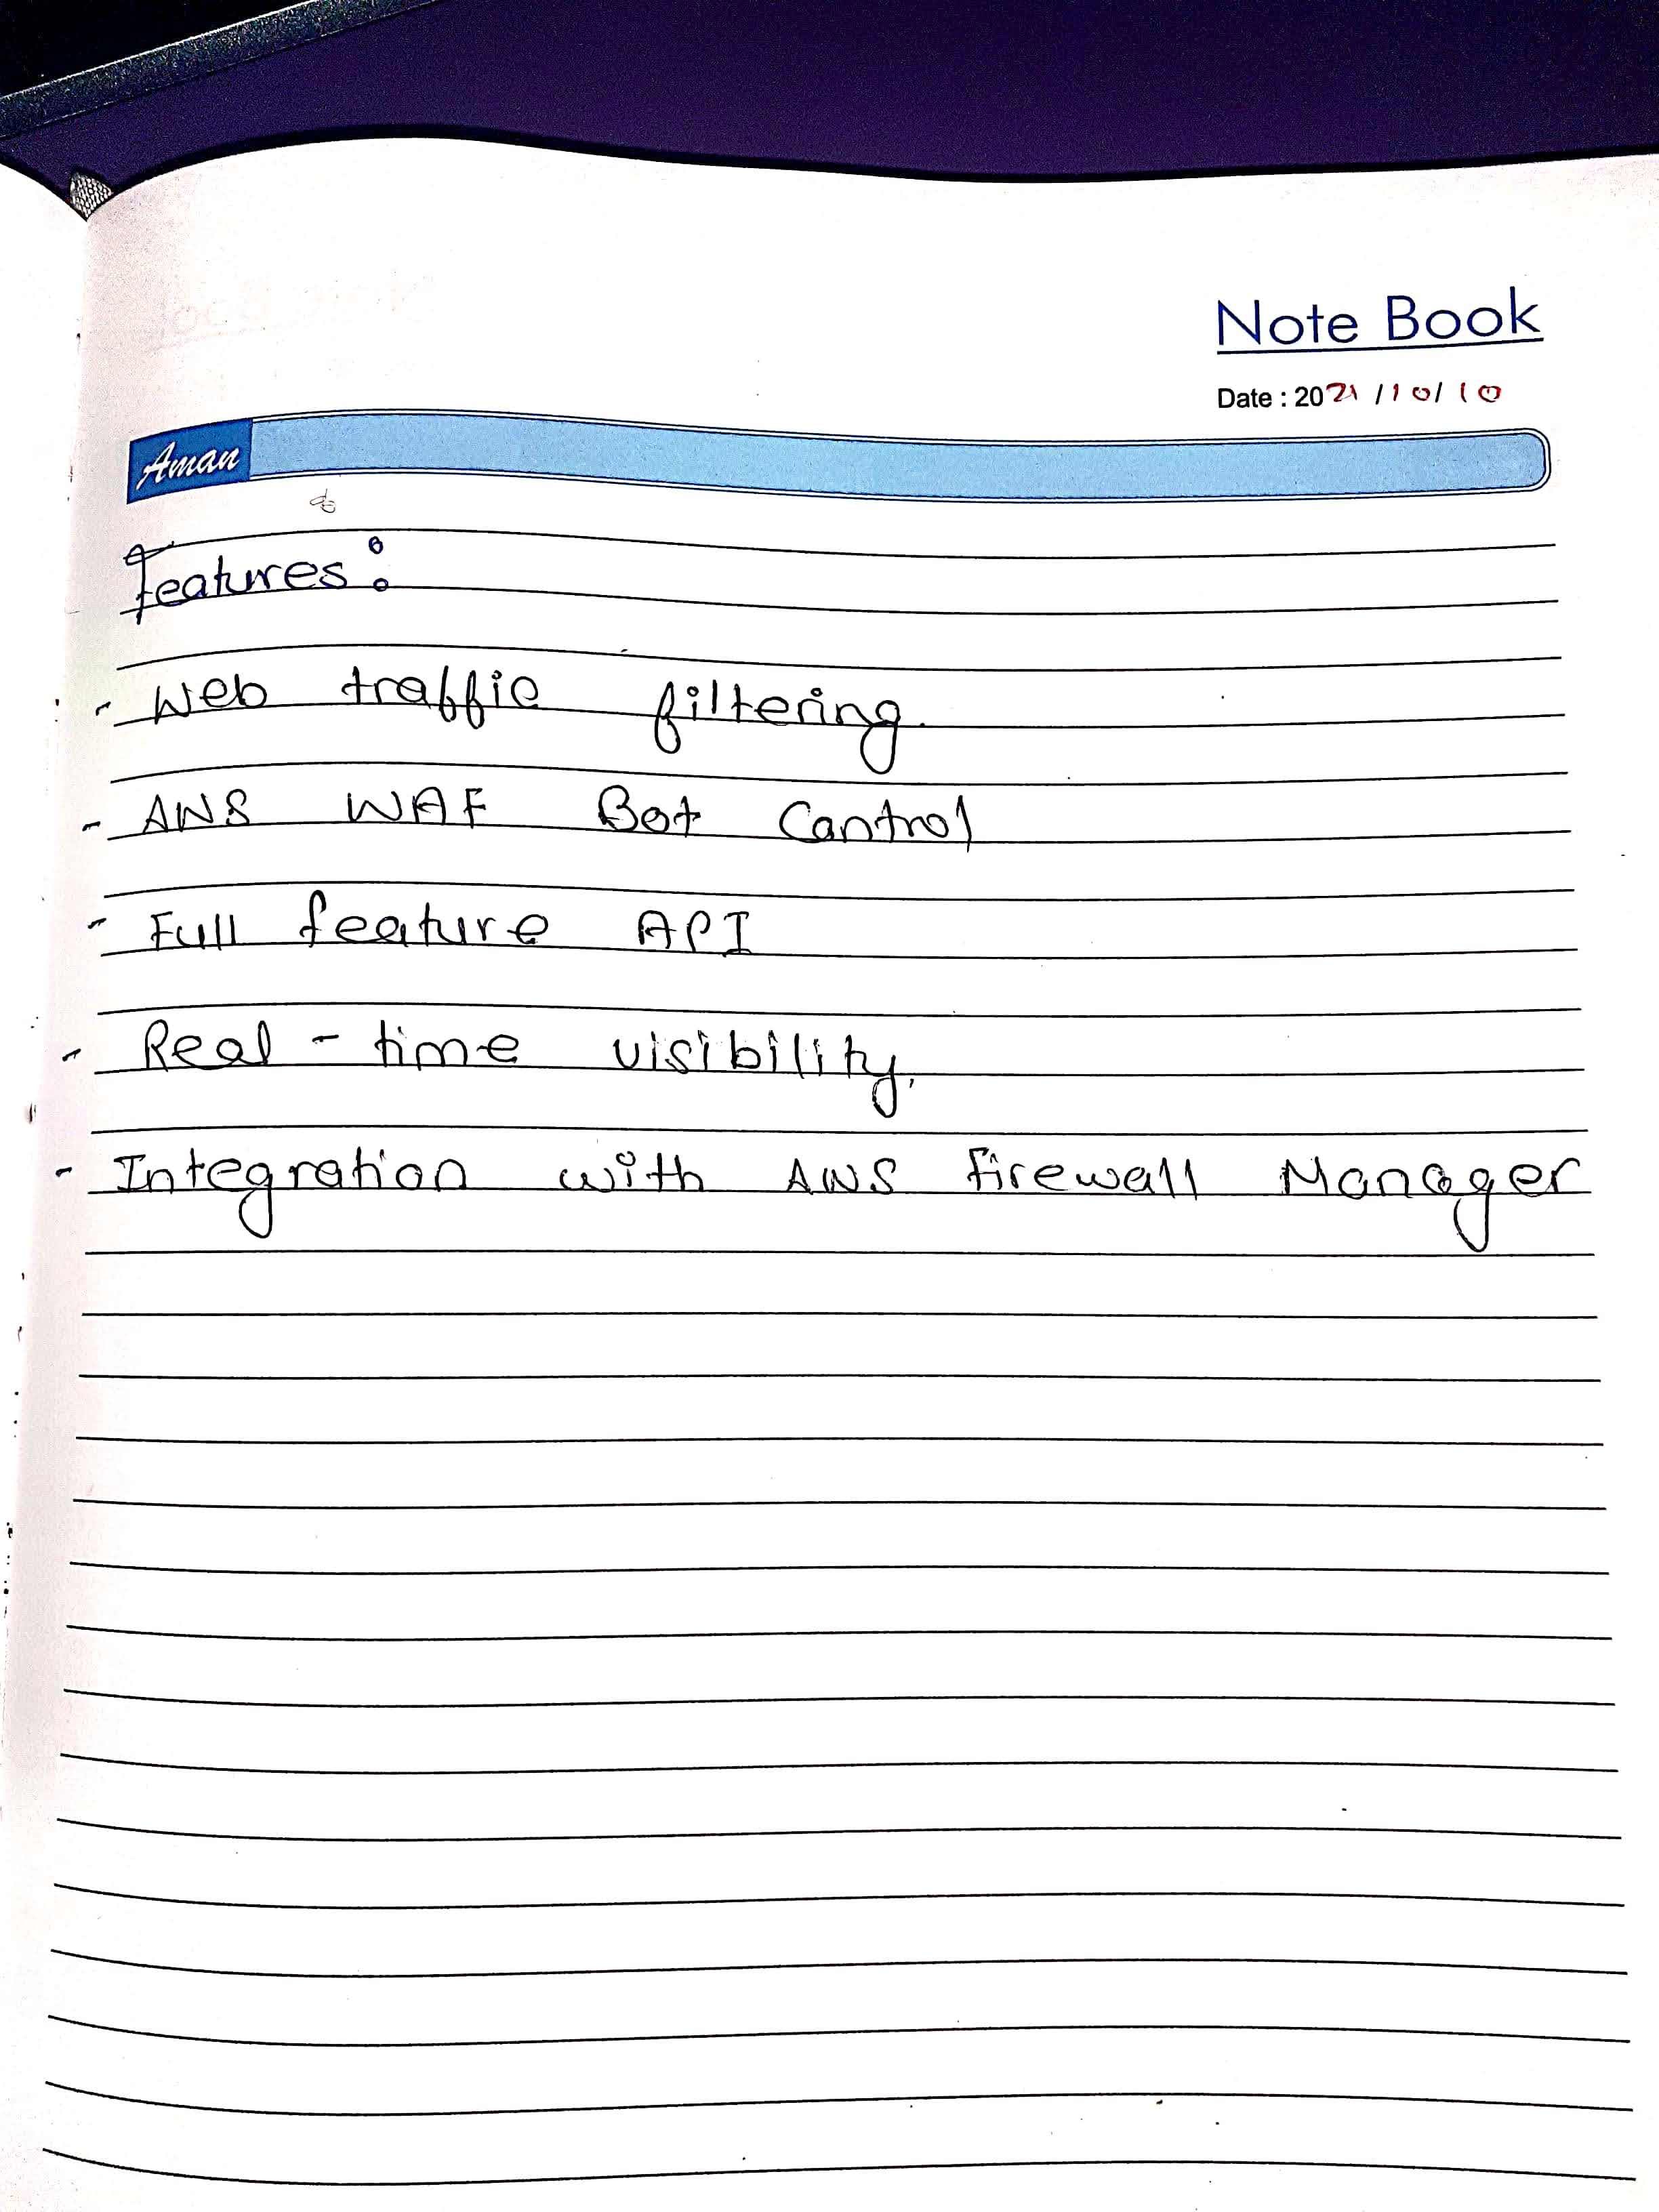 Note Book
Date : 2021/10/10
Aman
Features:
- Web traffic filtering.
- AWS WAF Bot Control
- Full feature API
- Real-time visibility.
- Integration with AWS Firewall Manager